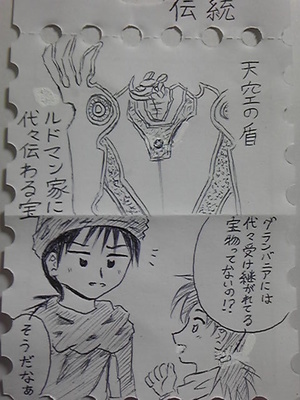 伝統
天空の盾
ルドマン家に
代々伝わる宝
グランバニアには
代々受け継がれてる
宝物ってないの!?
そうだなぁ